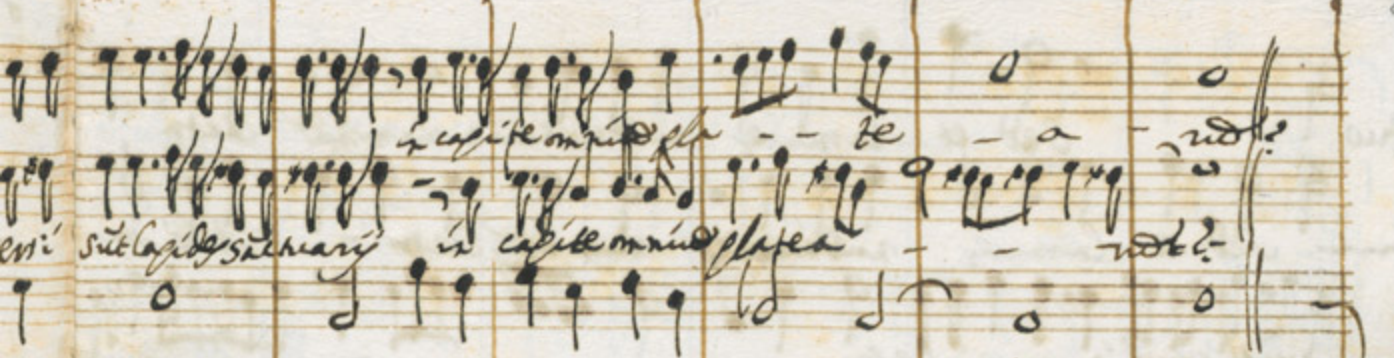 in capite omniũ pla - - te - a - rũ?
ersi sũt lapides sãctuarij in capite omniũ platea - - rũ?